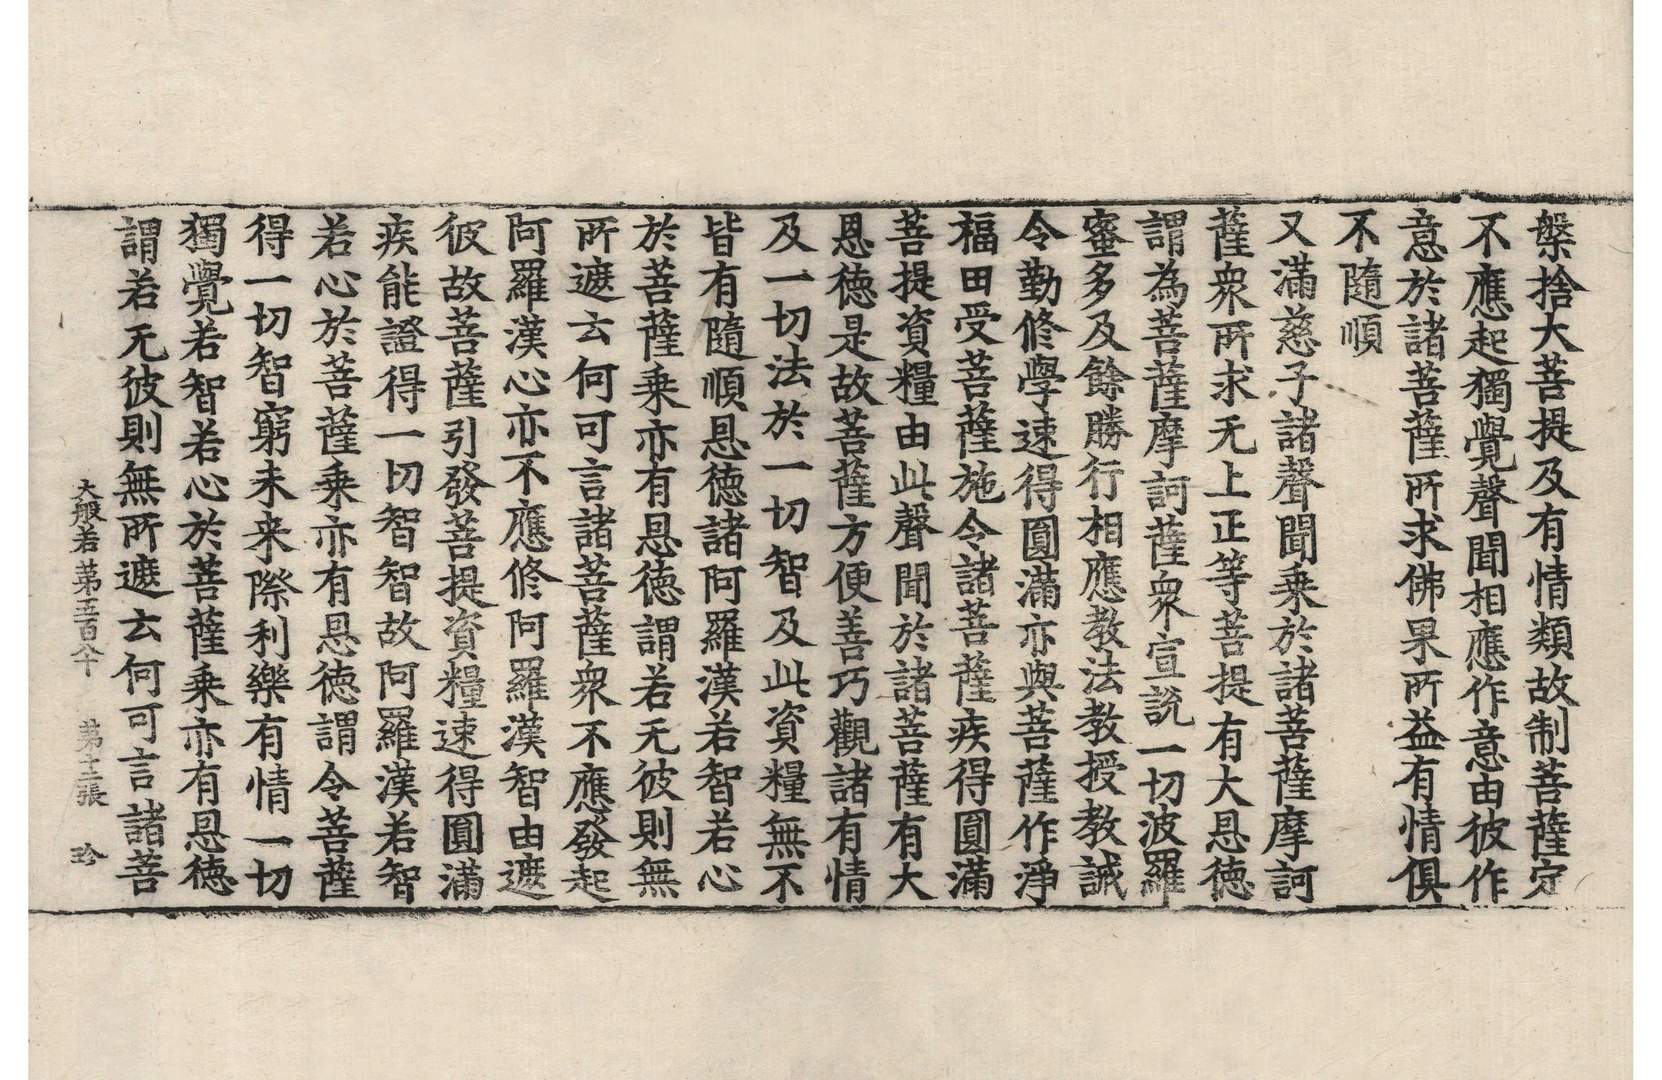 槃捨大菩提及有情類故制菩薩定
不應起獨覺聲聞相應作意由彼作
意於諸菩薩所求佛果所益有情俱
不隨順
又滿慈子諸聲聞乘於諸菩薩摩訶
薩衆所求无上正等菩提有大恩德
謂為菩薩摩訶薩衆宣說一切波羅
蜜多及餘勝行相應教法教授教誡
令勤修學速得圓滿亦與菩薩作淨
福田受菩薩施令諸菩薩疾得圓滿
菩提資糧由此聲聞於諸菩薩有大
恩德是故菩薩方便善巧觀諸有情
及一切法於一切智及此資糧無不
皆有隨順恩德諸阿羅漢若智若心
於菩薩乘亦有恩德謂若无彼則無
所遮云何可言諸菩薩衆不應發起
阿羅漢心亦不應修阿羅漢智由遮
彼故菩薩引發菩提資糧速得圓滿
疾能證得一切智智故阿羅漢若智
若心於菩薩乘亦有恩德謂令菩薩
得一切智窮未来際利樂有情一切
獨覺若智若心於菩薩乘亦有恩德
謂若无彼則無所遮云何可言諸菩
大般若第五百八十 第十二張 珎